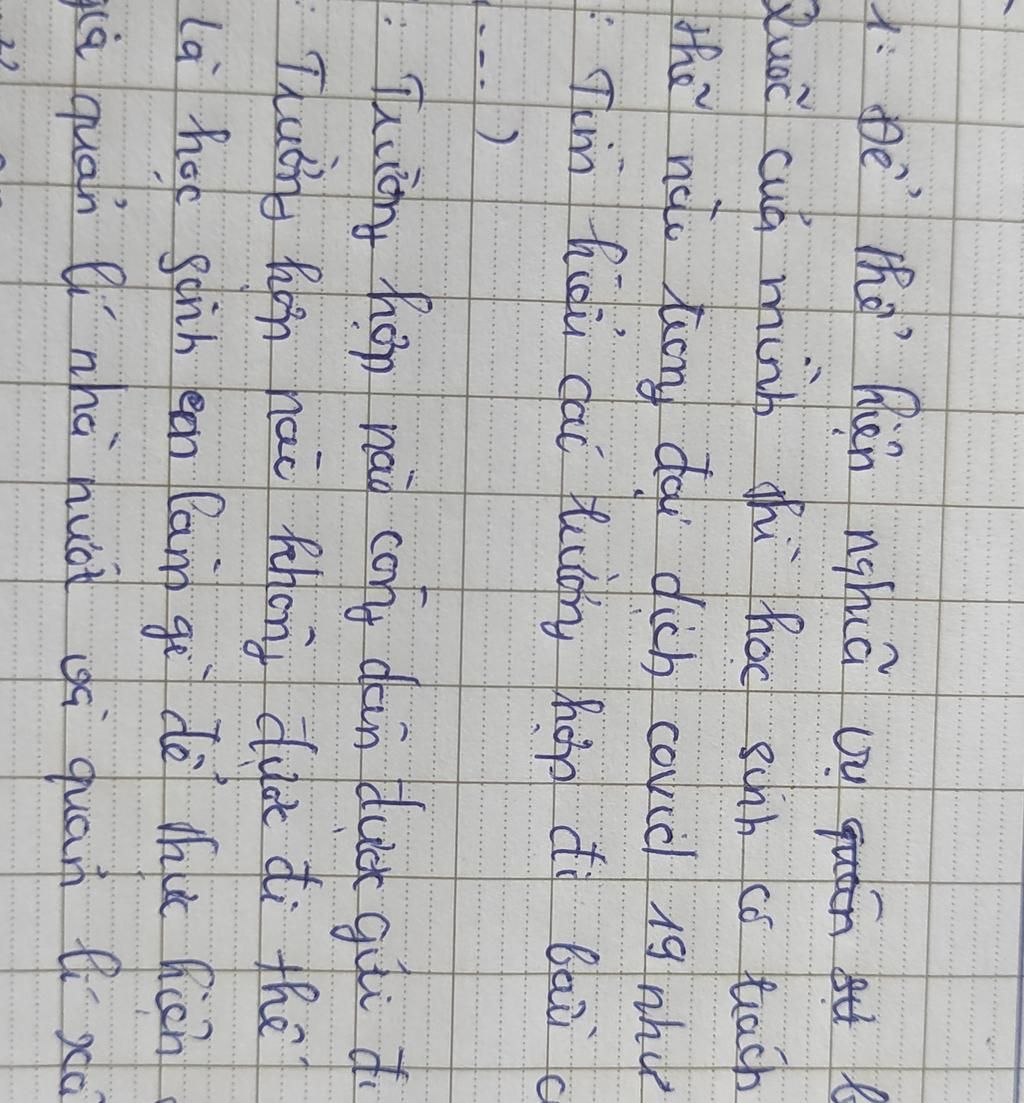 1: Để thể hiện nghĩa vụ quân sự b
Quốc của mình thì học sinh có trách
thế nào trong đại dịch covid 19 như
: Tìm hiểu các trường hợp đi bầu c
(....)
: Trường hợp nào công dân được gửi đi
: Trường hợp nào không được đi thế
là học sinh em làm gì để thực hiện
gia quản lí nhà nước và quản lí xã